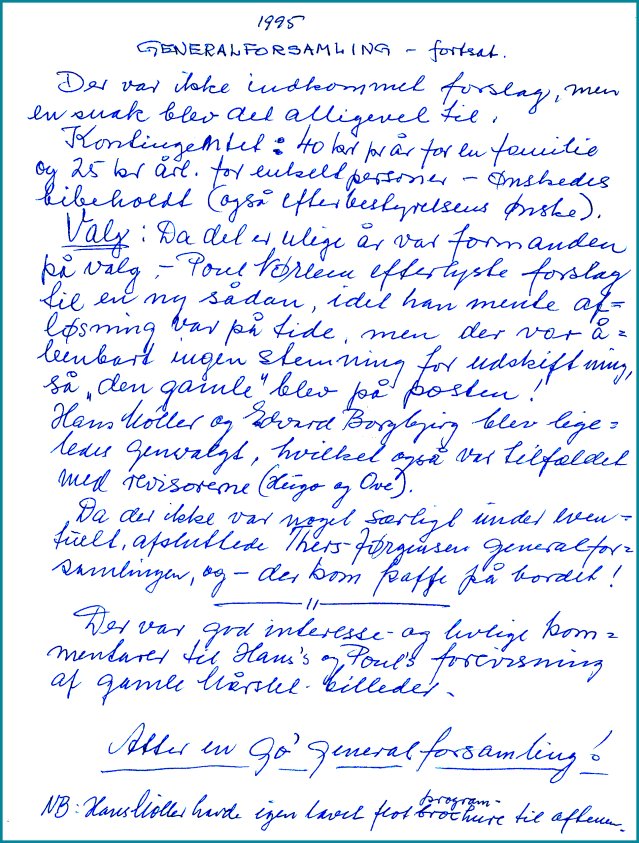 1995
GENERALFORSAMLING – fortsat.
Der var ikke indkommet forslag, men
en snak blev det alligevel til.
Kontingentet : 40 kr pr år for en familie
og 25 kr årl. for enkeltpersoner – ønskedes
bibeholdt (også efter bestyrelsens ønske).
Valg : Da det er ulige år var formanden
på valg, – Poul efterlyste forslag
til en ny sådan, idet han mente af=
løsning var på tide, men der var å=
benbart ingen stemning for udskiftning,
så „den gamle" blev på posten !
Hans Møller og Edvard Borgbjerg blev lige=
ledes genvalgt, hvilket også var tilfældet
med revisorerne (Hugo og Ove).
Da der ikke var noget særligt under even-
tuelt, afsluttede Thers-Jørgensen generalfor-
samlingen, og – der kom kaffe på bordet !
–– " ––
Der var god interesse og livlige kom=
mentarer til Hans's og Poul's forevisning
af gamle Hårslet-billeder.
Atter en go' generalforsamling !
NB : Hans Møller havde igen lavet flot program-
brochure til aftenen.